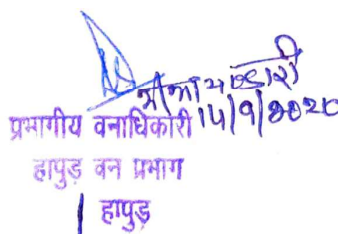 14/9/2020
प्रभागीय वनाधिकारी
हापुड़ वन प्रभाग
हापुड़